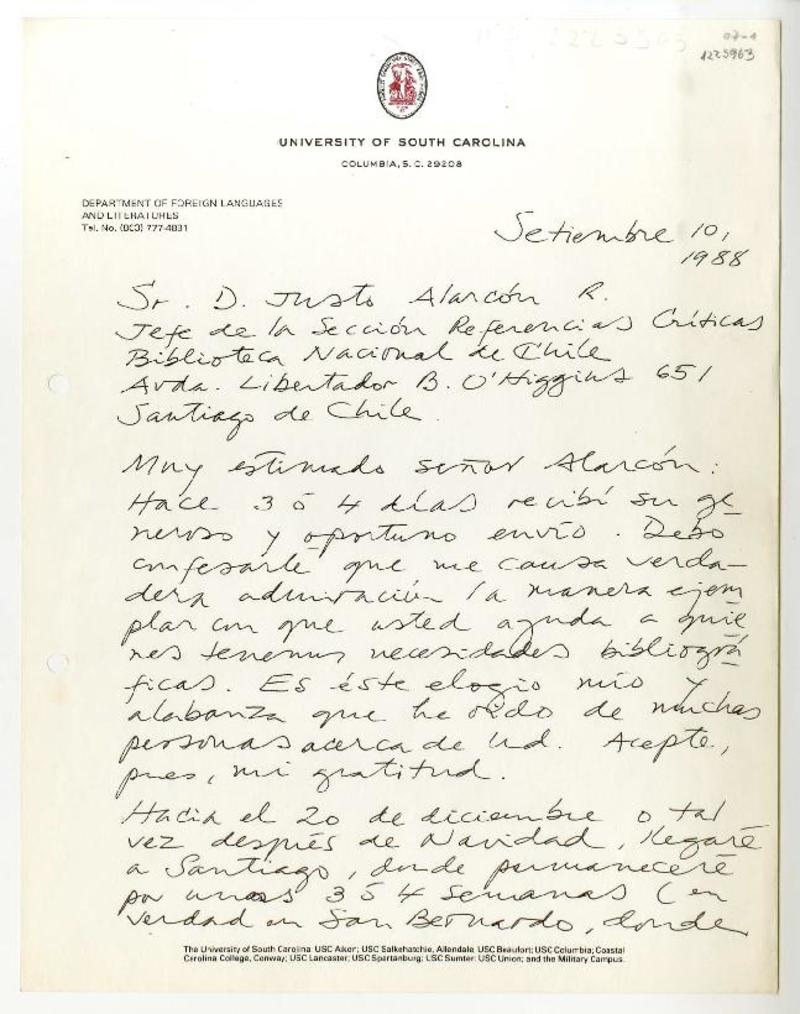 1225963
UNIVERSITY OF SOUTH CAROLINA
COLUMBIA, S. C. 29208
DEPARTMENT OF FOREIGN LANGUAGES
AND LITERATURES
Tel. No. (803) 777-4881
Setiembre 10,
1988
Sr. D. Justo Alarcón R.
Jefe de la Sección Referencias Críticas
Biblioteca Nacional de Chile
Avda. Libertador B. O'Higgins 651
Santiago de Chile.
Muy estimado señor Alarcón:
Hace 3 ó 4 días recibí su ge
neroso y oportuno envío. Debo
confesarle que me causa verda-
dera admiración la manera ejem
plar con que usted ayuda a quie
nes tenemos necesidades bibliográ
ficas. Es éste elogio mío y
alabanza que he oído de muchas
personas acerca de Ud. Acepte,
pues, mi gratitud.
Hacia el 20 de diciembre o tal
vez después de Navidad, llegaré
a Santiago, donde permaneceré
por unas 3 ó 4 semanas (en
verdad en San Bernardo, donde
The University of South Carolina: USC Aiken; USC Salkehatchie, Allendale; USC Beaufort; USC Columbia; Coastal
Carolina College, Conway; USC Lancaster; USC Spartanburg; USC Sumter; USC Union; and the Military Campus.